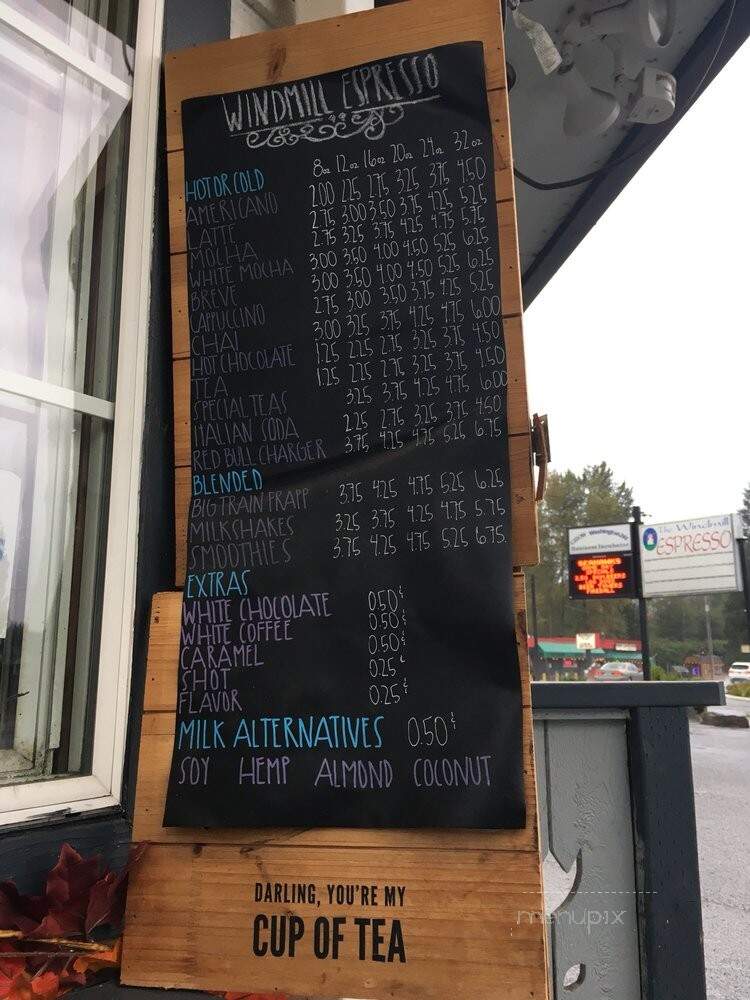 WINDMILL ESPRESSO
8oz 12oz 16oz 20oz 24oz 32oz
HOT OR COLD
AMERICANO 2.00 2.25 2.75 3.25 3.75 4.50
LATTE 2.75 3.00 3.50 3.75 4.25 5.25
MOCHA 2.75 3.25 3.75 4.25 4.75 5.75
WHITE MOCHA 3.00 3.50 4.00 4.50 5.25 6.25
BREVE 3.00 3.50 4.00 4.50 5.25 6.25
CAPPUCCINO 2.75 3.00 3.50 3.75 4.25 5.25
CHAI 3.00 3.25 3.75 4.25 4.75 6.00
HOT CHOCOLATE 1.25 2.25 2.75 3.25 3.75 4.50
TEA 1.25 2.25 2.75 3.25 3.75 4.50
SPECIAL TEAS 3.25 3.75 4.25 4.75 6.00
ITALIAN SODA 2.25 2.75 3.25 3.75 4.50
RED BULL CHARGER 3.75 4.25 4.75 5.25 6.75
BLENDED
BIG TRAIN FRAPP 3.75 4.25 4.75 5.25 6.25
MILKSHAKES 3.25 3.75 4.25 4.75 5.75
SMOOTHIES 3.75 4.25 4.75 5.25 6.75
EXTRAS
WHITE CHOCOLATE 0.50¢
WHITE COFFEE 0.50¢
CARAMEL 0.50¢
SHOT 0.25¢
FLAVOR 0.25¢
MILK ALTERNATIVES 0.50¢
SOY HEMP ALMOND COCONUT
DARLING, YOU'RE MY
CUP OF TEA
The Windmill
ESPRESSO
SEAHAWKS
menupix